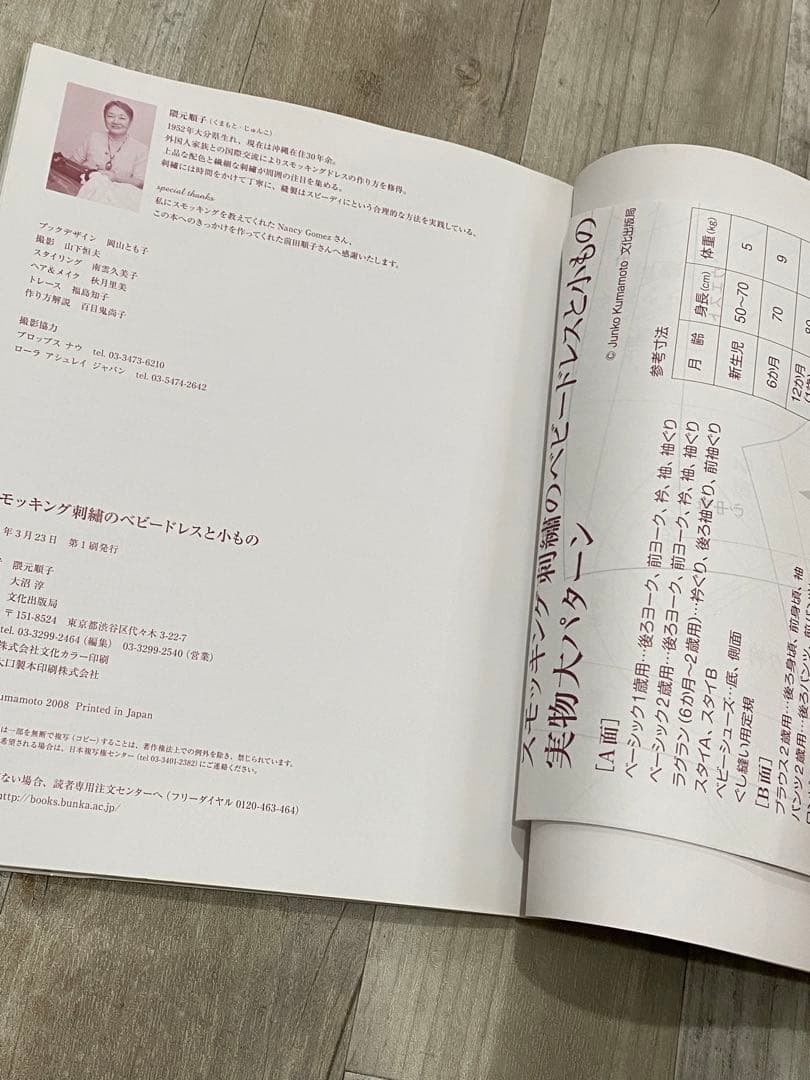 隈元順子(くまもと・じゅんこ)
1952年大分県生れ、現在は沖縄在住30年余。
外国人家族との国際交流によりスモッキングドレスの作り方を修得。
上品な配色と繊細な刺繡が周囲の注目を集める。
刺繡には時間をかけて丁寧に、縫製はスピーディにという合理的な方法を実践している。
special thanks
私にスモッキングを教えてくれたNancy Gomezさん、
この本へのきっかけを作ってくれた前田順子さんへ感謝いたします。
ブックデザイン 岡山とも子
撮影 山下恒夫
スタイリング 南雲久美子
ヘア&メイク 秋月里美
トレース 福島知子
作り方解説 百目鬼尚子
撮影協力
プロップス ナウ tel. 03-3473-6210
ローラ アシュレイ ジャパン tel. 03-5474-2642
モッキング刺繡のベビードレスと小もの
年3月23日 第1刷発行
隈元順子
大沼 淳
文化出版局
〒151-8524 東京都渋谷区代々木3-22-7
tel. 03-3299-2464(編集) 03-3299-2540(営業)
株式会社文化カラー印刷
大口製本印刷株式会社
umamoto 2008 Printed in Japan
は一部を無断で複写(コピー)することは、著作権法上での例外を除き、禁じられています。
希望される場合は、日本複写権センター(tel 03-3401-2382)にご連絡ください。
ない場合、読者専用注文センターへ(フリーダイヤル 0120-463-464)
http://books.bunka.ac.jp/
スモッキング刺繡のベビードレスと小もの
実物大パターン
© Junko Kumamoto 文化出版局
[A面]
ベーシック1歳用…後ろヨーク、前ヨーク、衿、袖、袖ぐり
ベーシック2歳用…後ろヨーク、前ヨーク、衿、袖、袖ぐり
ラグラン(6か月~2歳用)…衿ぐり、後ろ袖ぐり、前袖ぐり
スタイA、スタイB
ベビーシューズ…底、側面
ぐし縫い用定規
[B面]
ブラウス2歳用…後ろ身頃、前身頃、袖
パンツ2歳用…後ろパンツ、前パンツ
参考寸法
月 齢 身長(cm) 体重(kg)
新生児 50~70 5
6か月 70 9
12か月 80